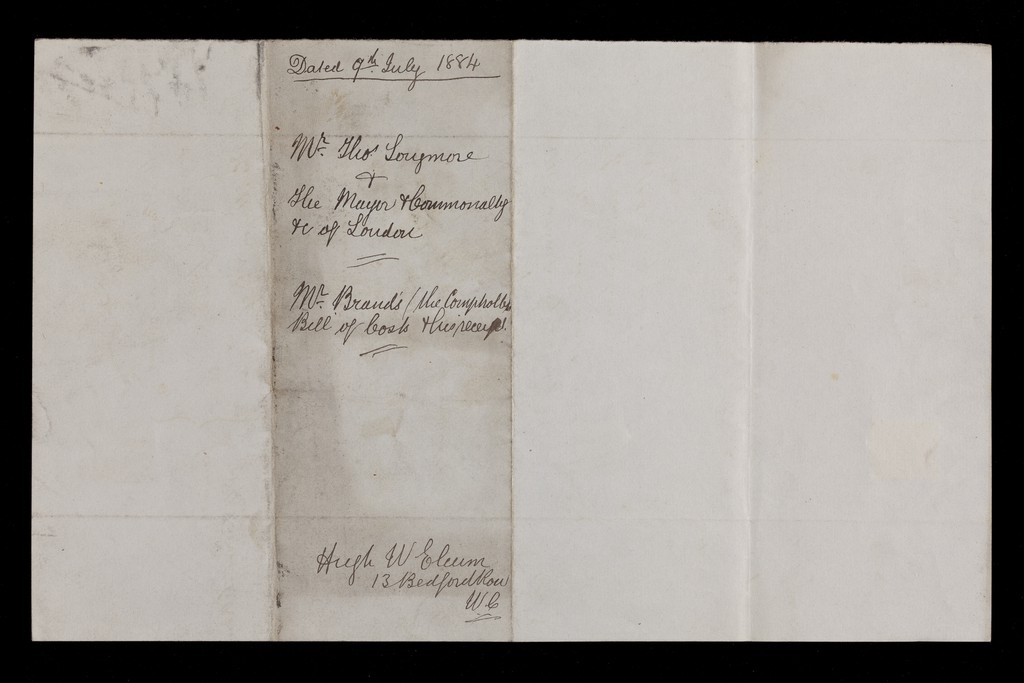 Dated 9th. July 1884
Mr. Thos. Longmore
&
The Mayor & Commonalty
&c of London
Mr. Brand's / the Comptroller
Bill of Costs & his receipt.
Hugh W Elcum
13 Bedford Row
W.C